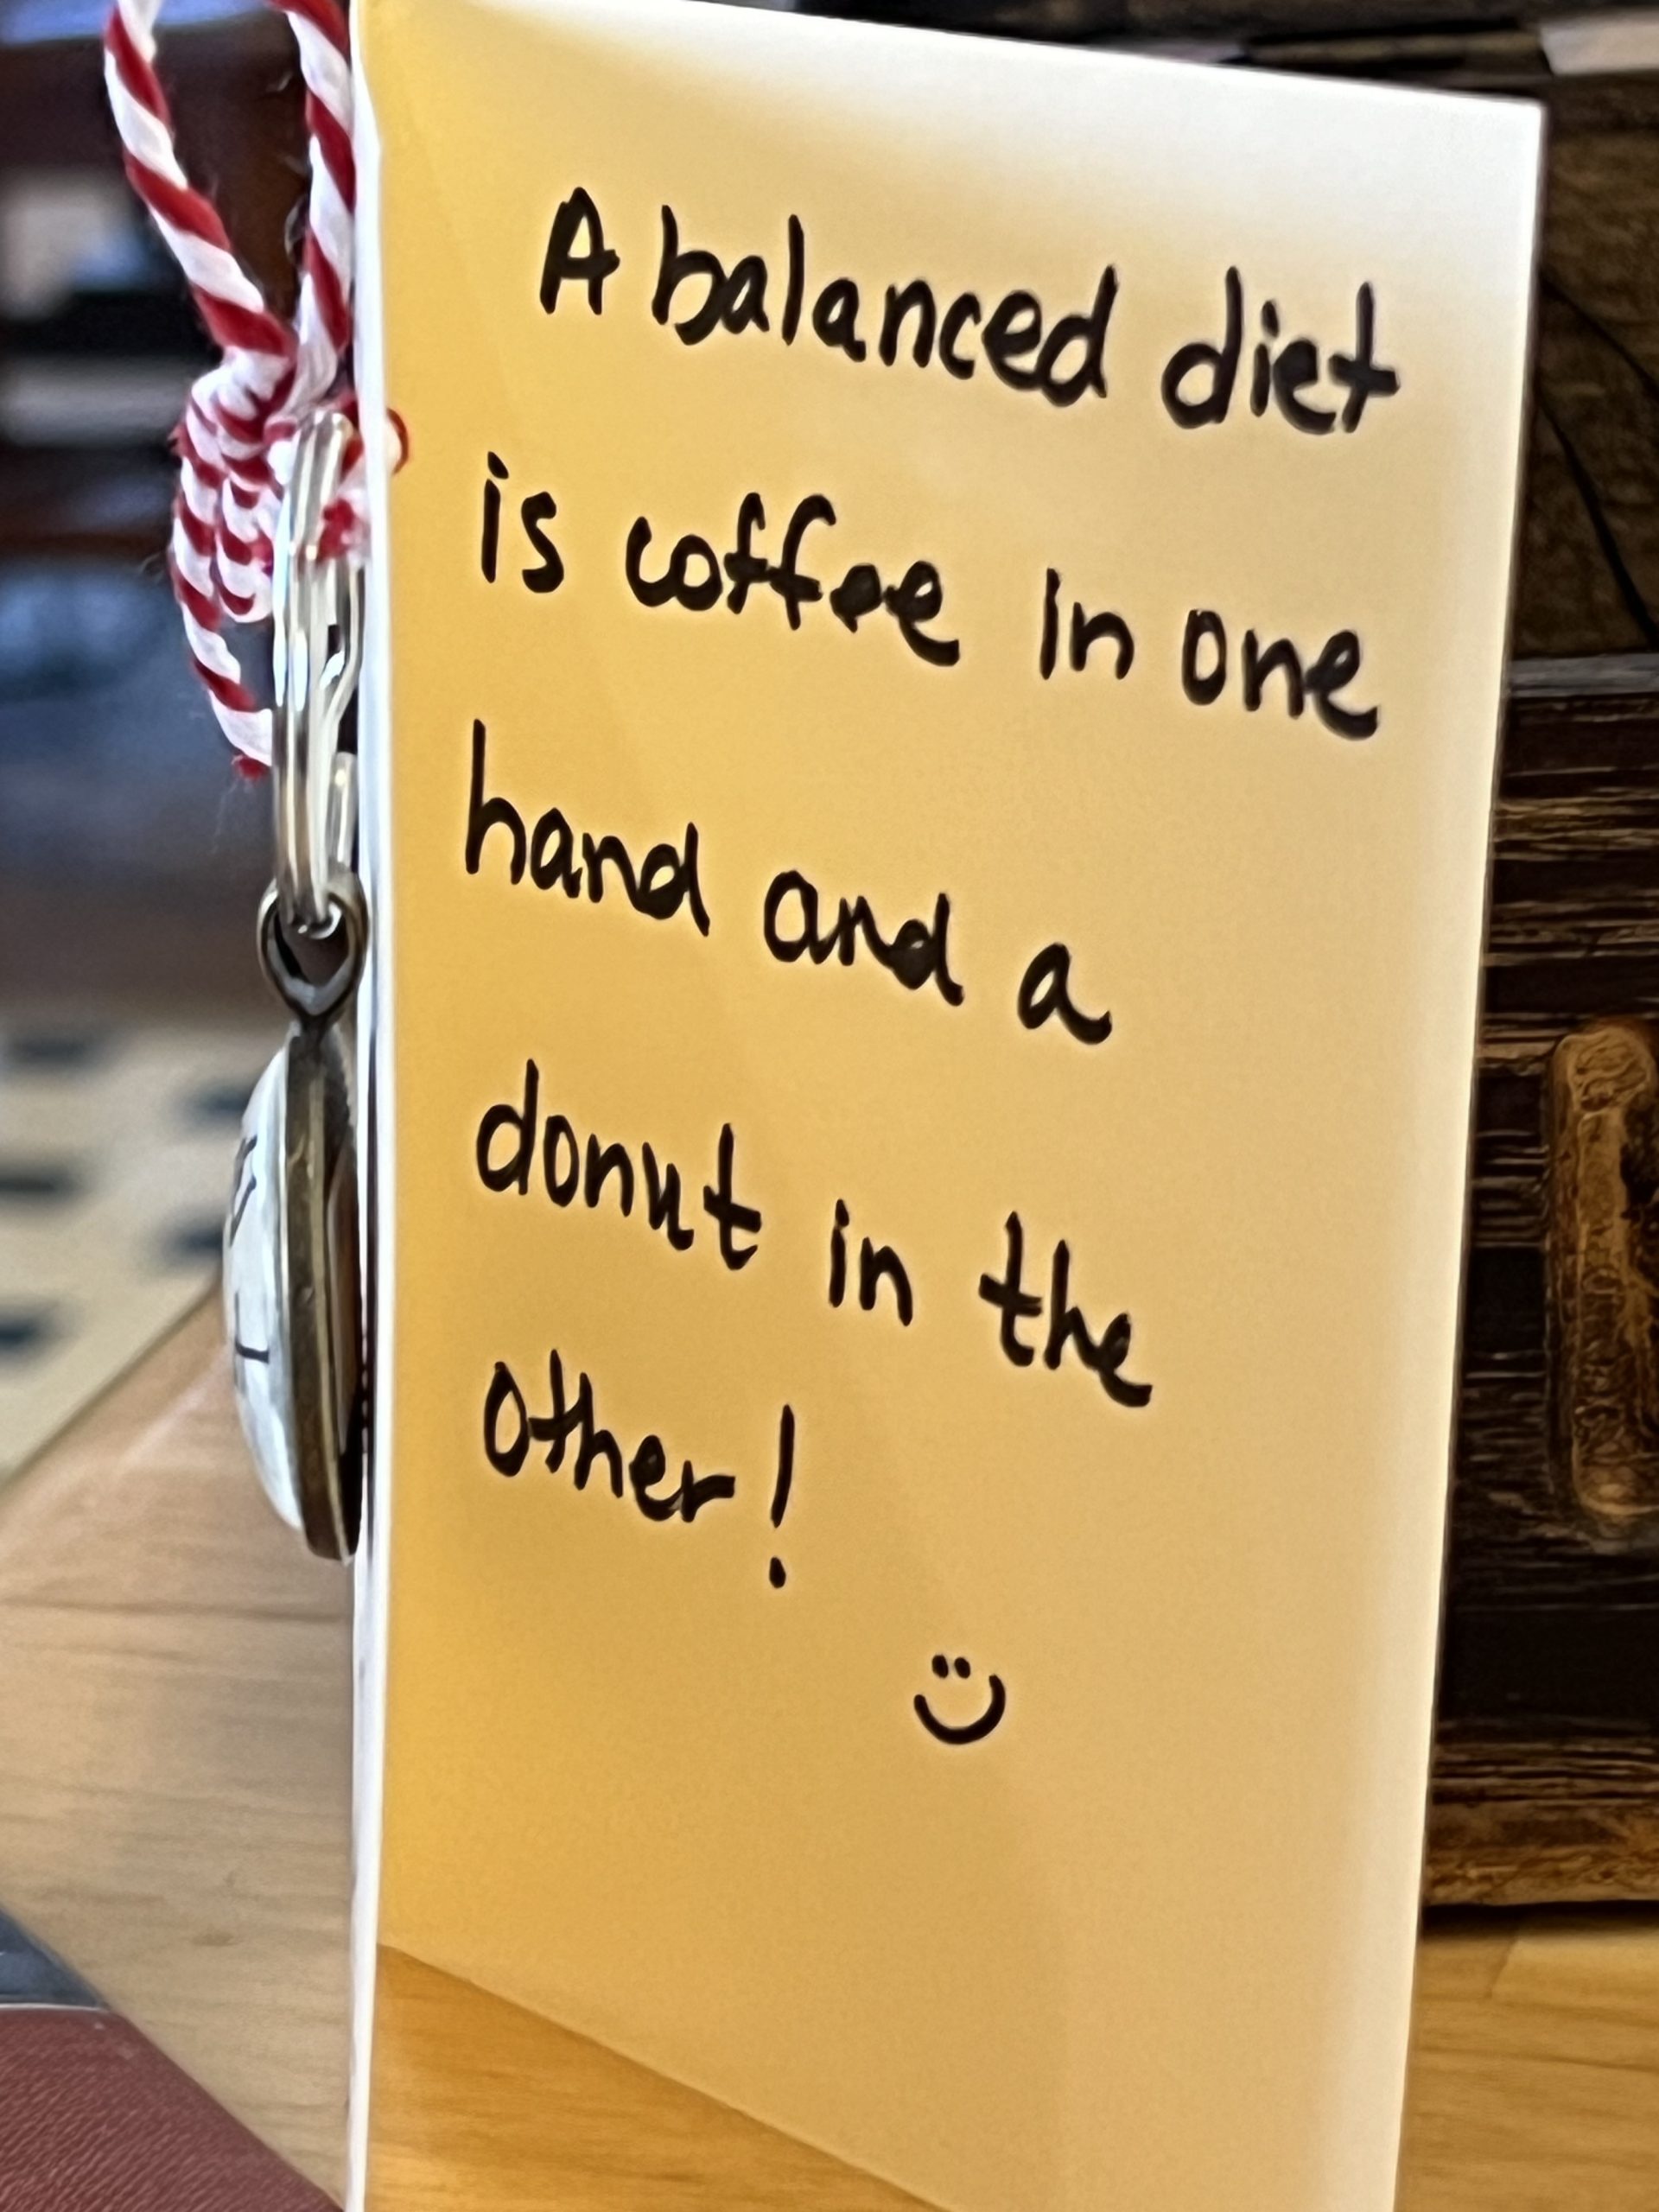 A balanced diet
is coffee in one
hand and a
donut in the
other!